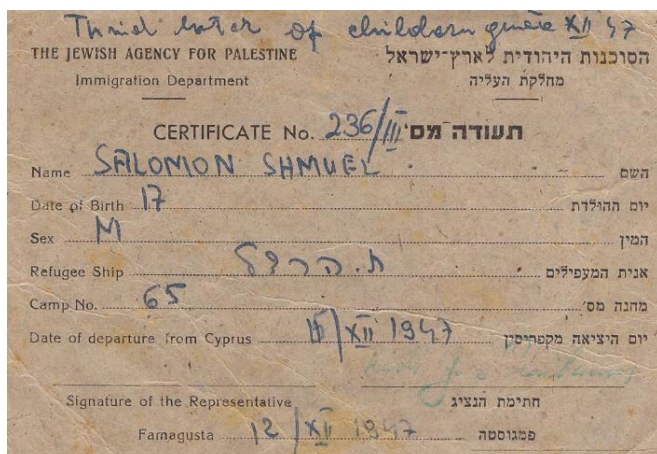 Third of children XII 47
THE JEWISH AGENCY FOR PALESTINE הסוכנות היהודית לארץ־ישראל
Immigration Department מחלקת העליה
CERTIFICATE No. 236/III תעודה מס'
Name SALOMON SHMUEL השם
Date of Birth 17 יום ההולדת
Sex M המין
Refugee Ship ת. הרצל אנית המעפילים
Camp No. 65 מחנה מס'
Date of departure from Cyprus XII 1947 יום היציאה מקפריסין
Signature of the Representative חתימת הנציג
Famagusta 12/XII 1947 פמגוסטה